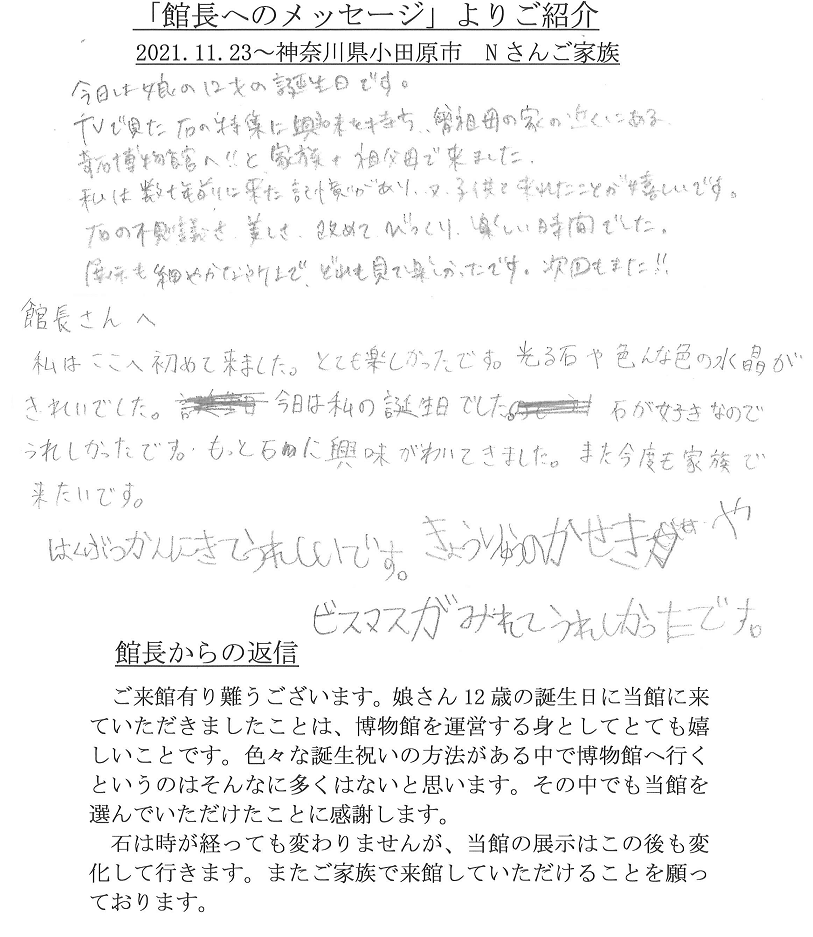 「館長へのメッセージ」よりご紹介
2021.11.23～神奈川県小田原市　Nさんご家族
今日は娘の12才の誕生日です。
TVで見た石の特集に興味を持ち、曽祖母の家の近くにある
奇石博物館へ!!と家族＋祖父母で来ました。
私は数十年前に来た記憶があり、又、子供と来れたことが嬉しいです。
石の不思議さ、美しさ、改めてびっくり、楽しい時間でした。
展示も細やかな所まで、どれも見て楽しかったです。次回もまた!!
館長さんへ
私はここへ初めて来ました。とても楽しかったです。光る石や色んな色の水晶が
きれいでした。今日は私の誕生日でした。石が好きなので
うれしかったです。もっと石に興味がわいてきました。また今度も家族で
来たいです。
はくぶつかんにきてうれしいです。きょうりゅうのかせきや
ビスマスがみれてうれしかったです。
館長からの返信
ご来館有り難うございます。娘さん12歳の誕生日に当館に来
ていただきましたことは、博物館を運営する身としてとても嬉
しいことです。色々な誕生祝いの方法がある中で博物館へ行く
というのはそんなに多くはないと思います。その中でも当館を
選んでいただけたことに感謝します。
石は時が経っても変わりませんが、当館の展示はこの後も変
化して行きます。またご家族で来館していただけることを願っ
ております。